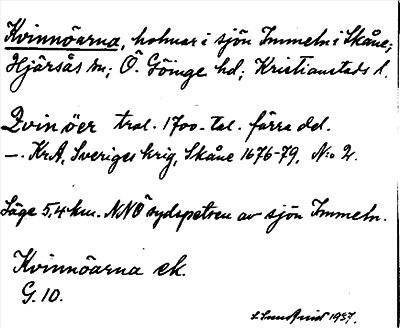 Kvinnöarna, holmar i sjön Immeln i Skåne;
Hjärsås sn; Ö. Göinge hd; Kristianstads l.
Qvinöer trol. 1700-tal. förra del.
—. KrA, Sveriges krig, Skåne 1676-79, N:o 2.
Läge 5,4 km. NNÖ sydspetsen av sjön Immeln.
Kvinnöarna ek.
G. 10.
1937.